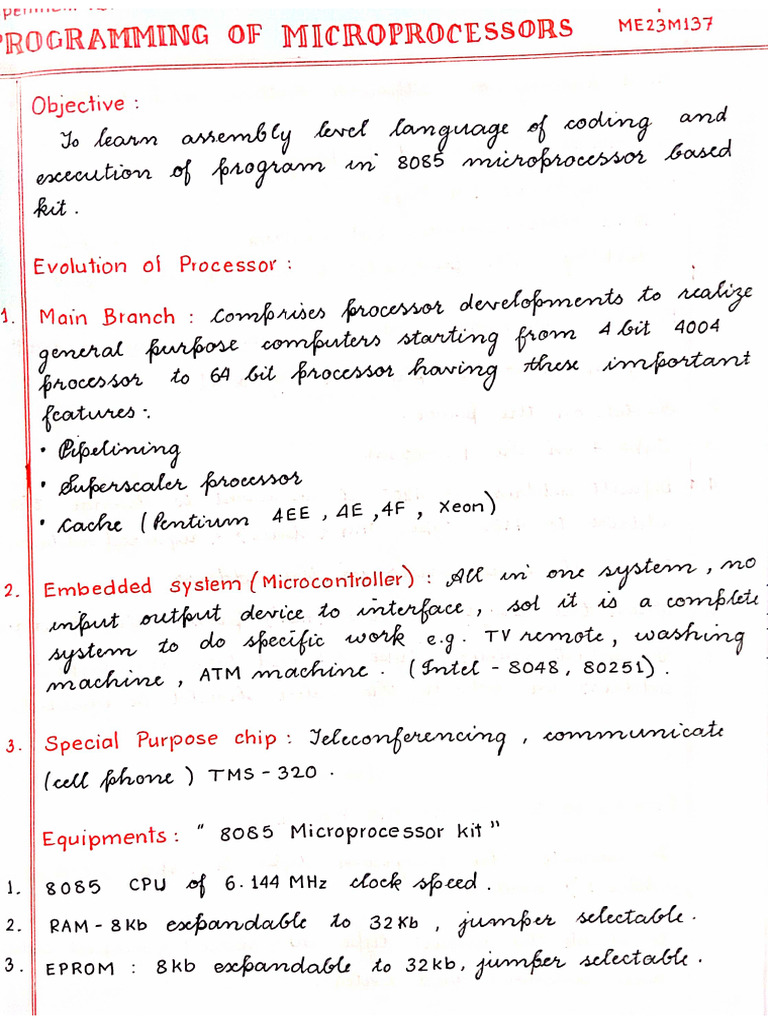 PROGRAMMING OF MICROPROCESSORS ME23M137
Objective :
To learn assembly level language of coding and
execution of program in 8085 microprocessor based
kit .
Evolution of Processor :
1. Main Branch : Comprises processor developments to realize
general purpose computers starting from 4 bit 4004
processor to 64 bit processor having these important
features :.
• Pipelining
• Superscaler processor
• Cache ( Pentium 4EE , 4E , 4F , Xeon )
2. Embedded system ( Microcontroller ) : All in one system , no
input output device to interface , sol it is a complete
system to do specific work e.g. TV remote , washing
machine , ATM machine . ( Intel - 8048 , 80251 ) .
3. Special Purpose chip : Teleconferencing , communicate
( cell phone ) TMS - 320 .
Equipments : " 8085 Microprocessor kit "
1. 8085 CPU of 6.144 MHz clock speed .
2. RAM - 8Kb expandable to 32Kb , jumper selectable .
3. EPROM : 8kb expandable to 32kb , jumper selectable .